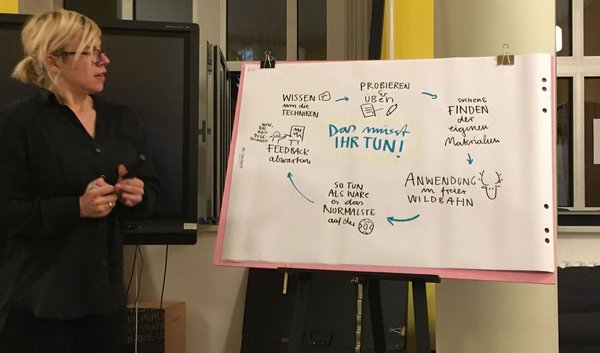 Das müsst
IHR TUN!
WISSEN
um die
TECHNIKEN
PROBIEREN
&
ÜBEN
SUCHE &
FINDEN
der
eigenen
Materialien
ANWENDUNG
in freier
WILDBAHN
SO TUN
ALS WÄRE
es das
NORMALSTE
auf der
FEEDBACK
abwarten